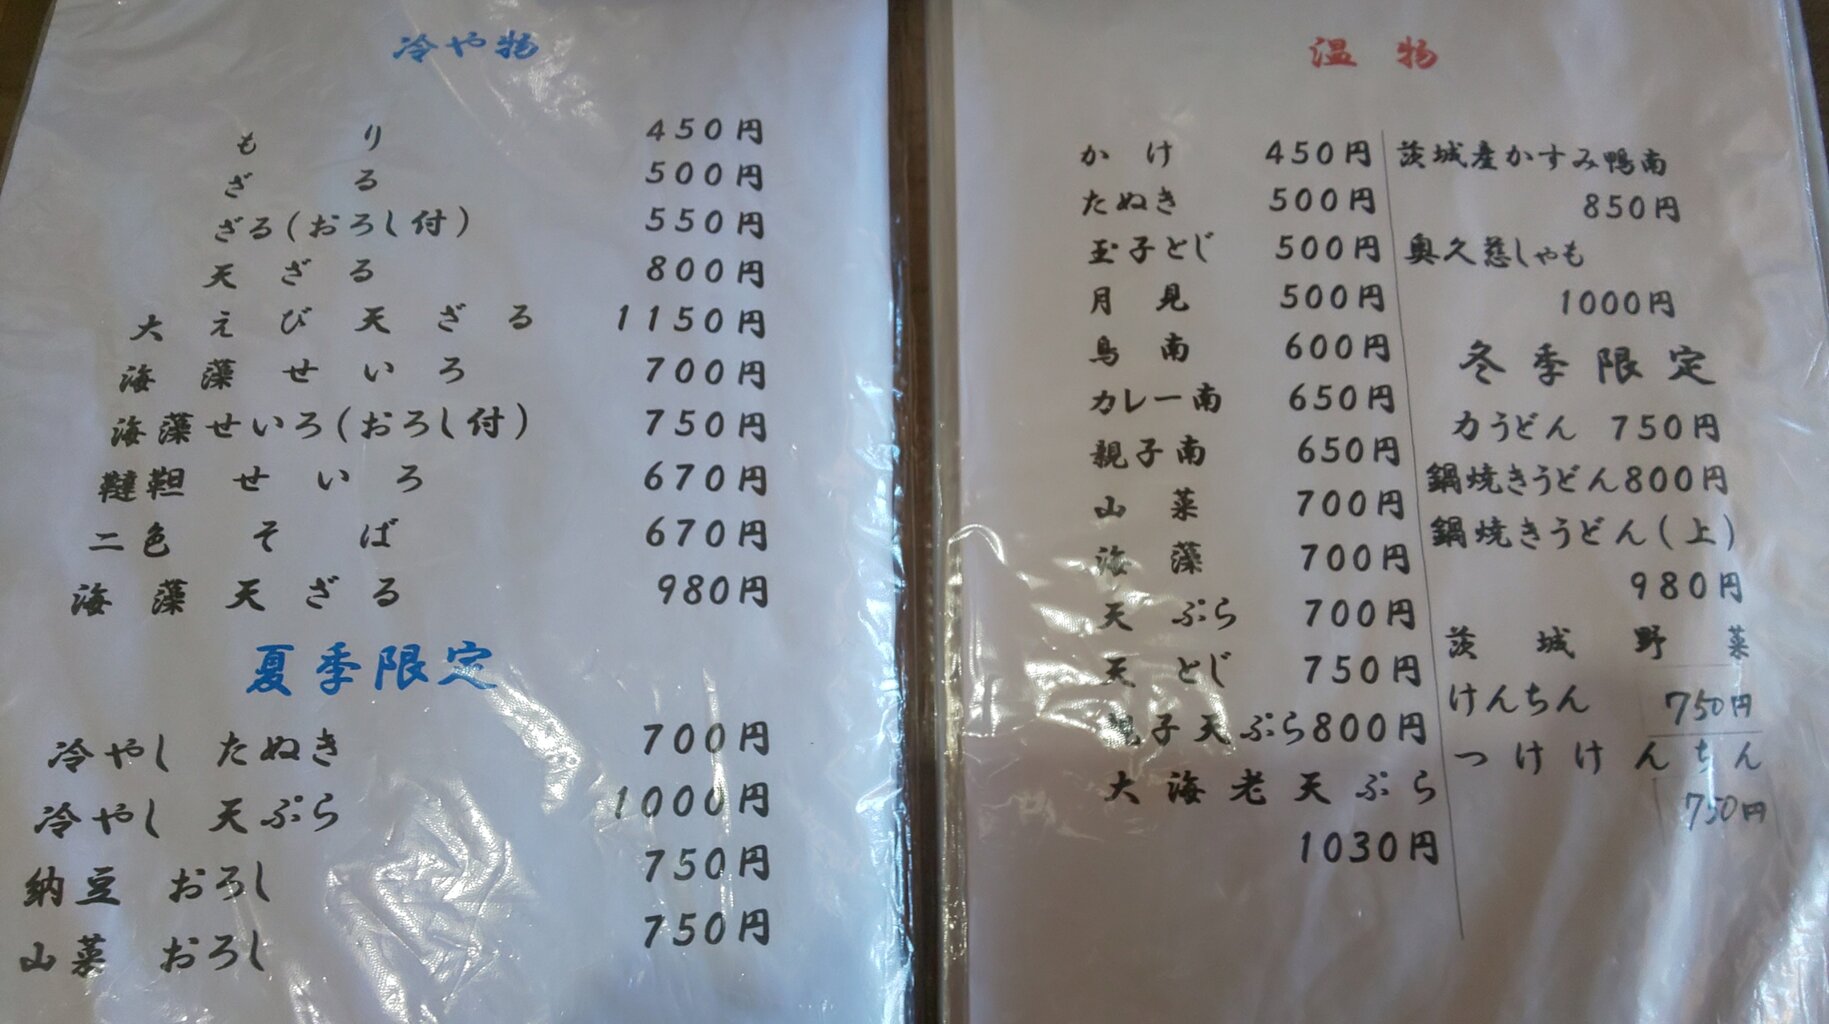 冷や物
もり 450円
ざる 500円
ざる(おろし付) 550円
天ざる 800円
大えび天ざる 1150円
海藻せいろ 700円
海藻せいろ(おろし付) 750円
韃靼せいろ 670円
二色そば 670円
海藻天ざる 980円
夏季限定
冷やしたぬき 700円
冷やし天ぷら 1000円
納豆おろし 750円
山菜おろし 750円
温物
かけ 450円
たぬき 500円
玉子とじ 500円
月見 500円
鳥南 600円
カレー南 650円
親子南 650円
山菜 700円
海藻 700円
天ぷら 700円
天とじ 750円
親子天ぷら800円
大海老天ぷら
1030円
茨城産かすみ鴨南
850円
奥久慈しゃも
1000円
冬季限定
力うどん 750円
鍋焼きうどん800円
鍋焼きうどん(上)
980円
茨城野菜
けんちん 750円
つけけんちん
750円